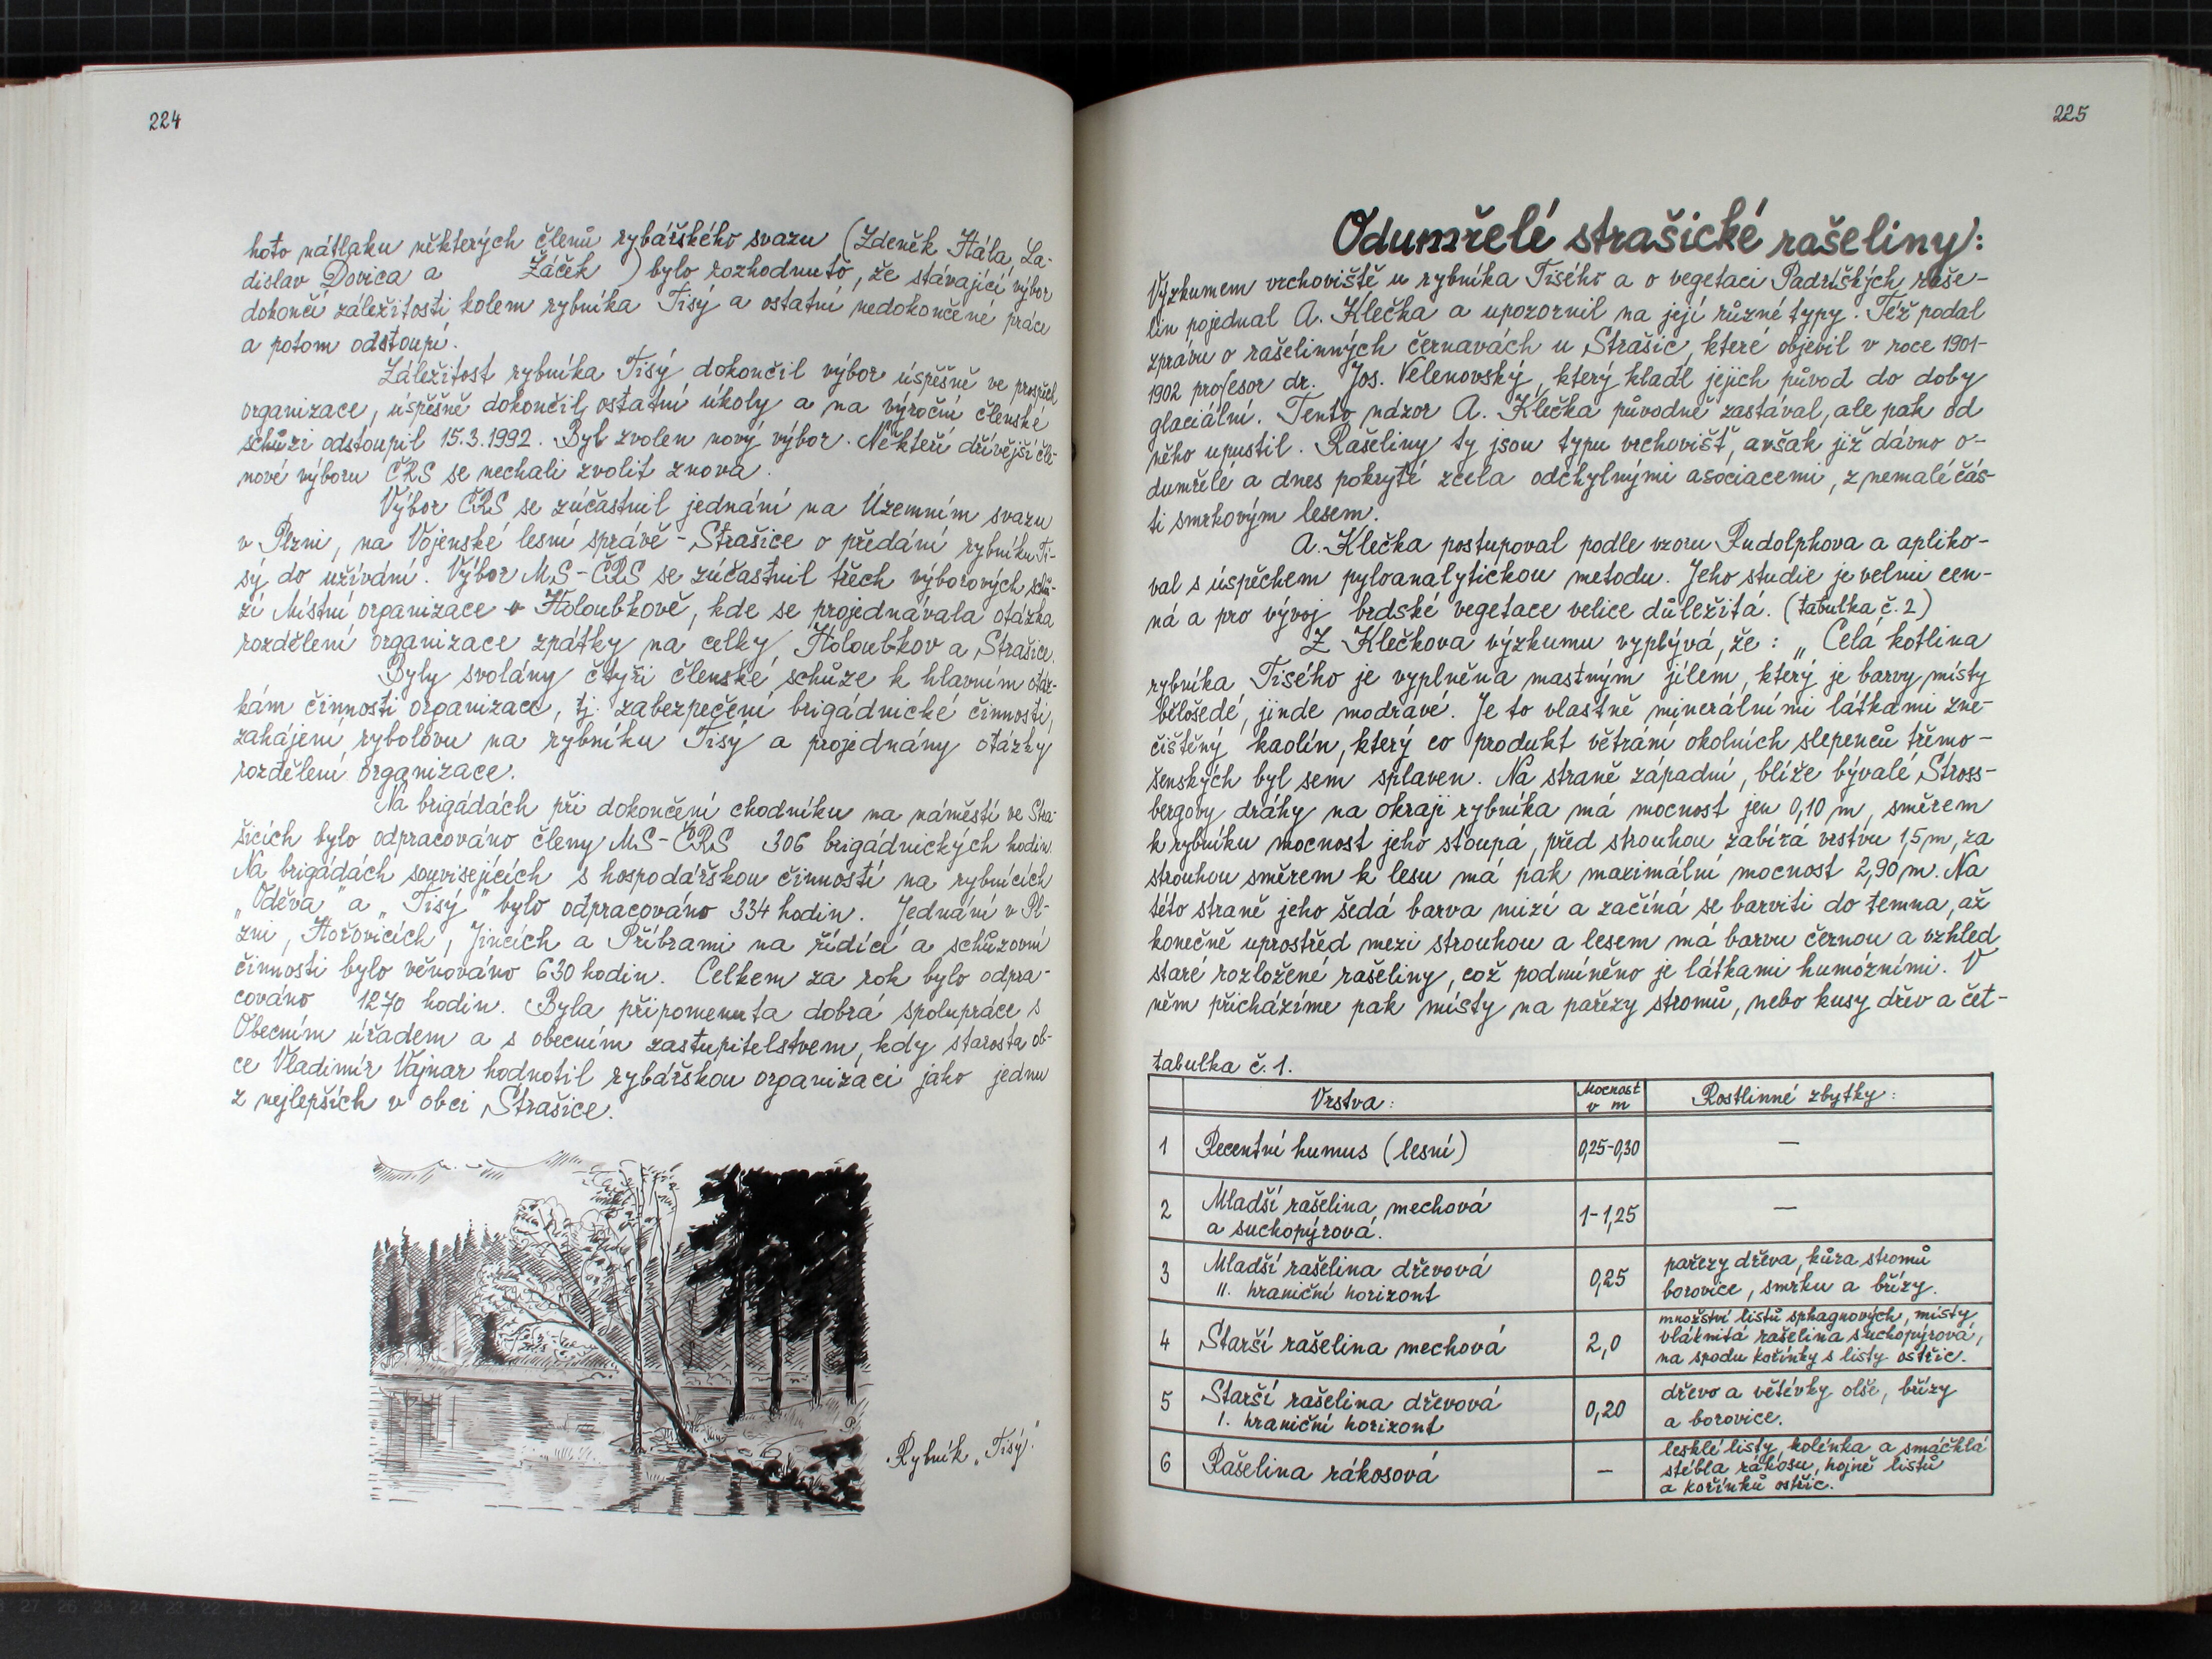 224
hoto nátlaku některých členů rybářského svazu (Zdeněk Hála, La-
dislav Dovica a Žáček ) bylo rozhodnuto, že stávající výbor
dokončí záležitosti kolem rybníka Tisý a ostatní nedokončené práce
a potom odstoupí.
Záležitost rybníka Tisý dokončil výbor úspěšně ve prospěch
organizace, úspěšně dokončil ostatní úkoly a na výroční členské
schůzi odstoupil 15.3.1992. Byl zvolen nový výbor. Někteří dřívější čle-
nové výboru ČRS se nechali zvolit znova.
Výbor ČRS se zúčastnil jednání na Územním svazu
v Plzni, na Vojenské lesní správě - Strašice o předání rybníku Ti-
sý do užívání. Výbor MS-ČRS se zúčastnil třech výborových schů-
zí Místní organizace v Holoubkově, kde se projednávala otázka
rozdělení organizace zpátky na celky Holoubkov a Strašice.
Byly svolány čtyři členské schůze k hlavním otáz-
kám činnosti organizace, tj. zabezpečení brigádnické činnosti,
zahájení rybolovu na rybníku Tisý a projednány otázky
rozdělení organizace.
Na brigádách při dokončení chodníku na náměstí ve Stra-
šicích bylo odpracováno členy MS-ČRS 306 brigádnických hodin.
Na brigádách souvisejících s hospodářskou činností na rybnících
„Oděva" a „Tisý" bylo odpracováno 334 hodin. Jednání v Pl-
zni, Hořovicích, Jincích a Příbrami na řídící a schůzovní
činnosti bylo věnováno 630 hodin. Celkem za rok bylo odpra-
cováno 1270 hodin. Byla připomenuta dobrá spolupráce s
Obecním úřadem a s obecním zastupitelstvem, kdy starosta ob-
ce Vladimír Vajnar hodnotil rybářskou organizaci jako jednu
z nejlepších v obci Strašice.
Rybník „Tisý"
225
Odumřelé strašické rašeliny:
Výzkumem vrchoviště u rybníka Tisého a o vegetaci Padrtských raše-
lin pojednal A. Klečka a upozornil na její různé typy. Též podal
zprávu o rašelinných černavách u Strašic, které objevil v roce 1901-
1902 profesor dr. Jos. Velenovský, který kladl jejich původ do doby
glaciální. Tento názor A. Klečka původně zastával, ale pak od
něho upustil. Rašeliny ty jsou typu vrchovišť, avšak již dávno o-
dumřelé a dnes pokryté zcela odchylnými asociacemi, z nemalé čás-
ti smrkovým lesem.
A. Klečka postupoval podle vzoru Rudolphova a apliko-
val s úspěchem pyloanalytickou metodu. Jeho studie je velmi cen-
ná a pro vývoj brdské vegetace velice důležitá. (tabulka č. 2)
Z Klečkova výzkumu vyplývá, že : „ Celá kotlina
rybníka Tisého je vyplněna mastným jílem, který je barvy místy
bělošedé, jinde modravé. Je to vlastně minerálními látkami zne-
čištěný kaolín, který co produkt větrání okolních slepenců třemo-
šenských byl sem splaven. Na straně západní, blíže bývalé Stross-
bergovy dráhy na okraji rybníka má mocnost jen 0,10 m, směrem
k rybníku mocnost jeho stoupá, před strouhou zabírá vrstvu 1,5 m, za
strouhou směrem k lesu má pak maximální mocnost 2,90 m. Na
této straně jeho šedá barva mizí a začíná se barviti do temna, až
konečně uprostřed mezi strouhou a lesem má barvu černou a vzhled
staré rozložené rašeliny, což podmíněno je látkami humózními. V
něm přicházíme pak místy na pařezy stromů, nebo kusy dřev a čet-
tabulka č. 1.
Vrstva: Mocnost v m Rostlinné zbytky:
1 Recentní humus (lesní) 0,25-0,30 —
2 Mladší rašelina mechová
a suchopýrová. 1-1,25 —
3 Mladší rašelina dřevová
II. hraniční horizont 0,25 pařezy dřeva, kůra stromů
borovice, smrku a břízy.
4 Starší rašelina mechová 2,0 množství listů sphagnových, místy
vláknitá rašelina suchopýrová,
na spodu kořínky s listy ostřic.
5 Starší rašelina dřevová
I. hraniční horizont 0,20 dřevo a větévky olše, břízy
a borovice.
6 Rašelina rákosová — lesklé listy, kolínka a smáčklá
stébla rákosu, hojně listů
a kořínků ostřic.